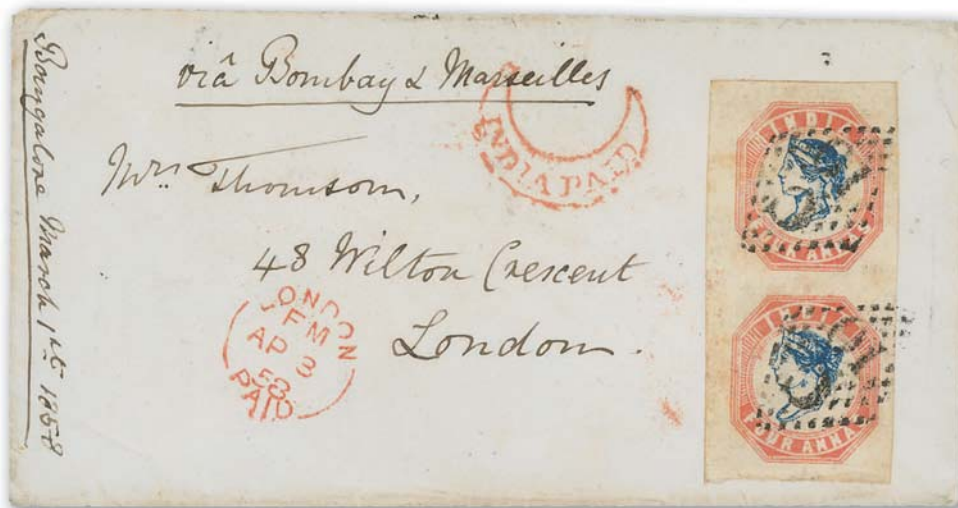 Bangalore March 1st 1858
viâ Bombay & Marseilles
INDIA PAID
Mrs Thomson,
48 Wilton Crescent
London.
LONDON
FM
AP 3
58
PAID
INDIA
FOUR ANNAS
INDIA
FOUR ANNAS